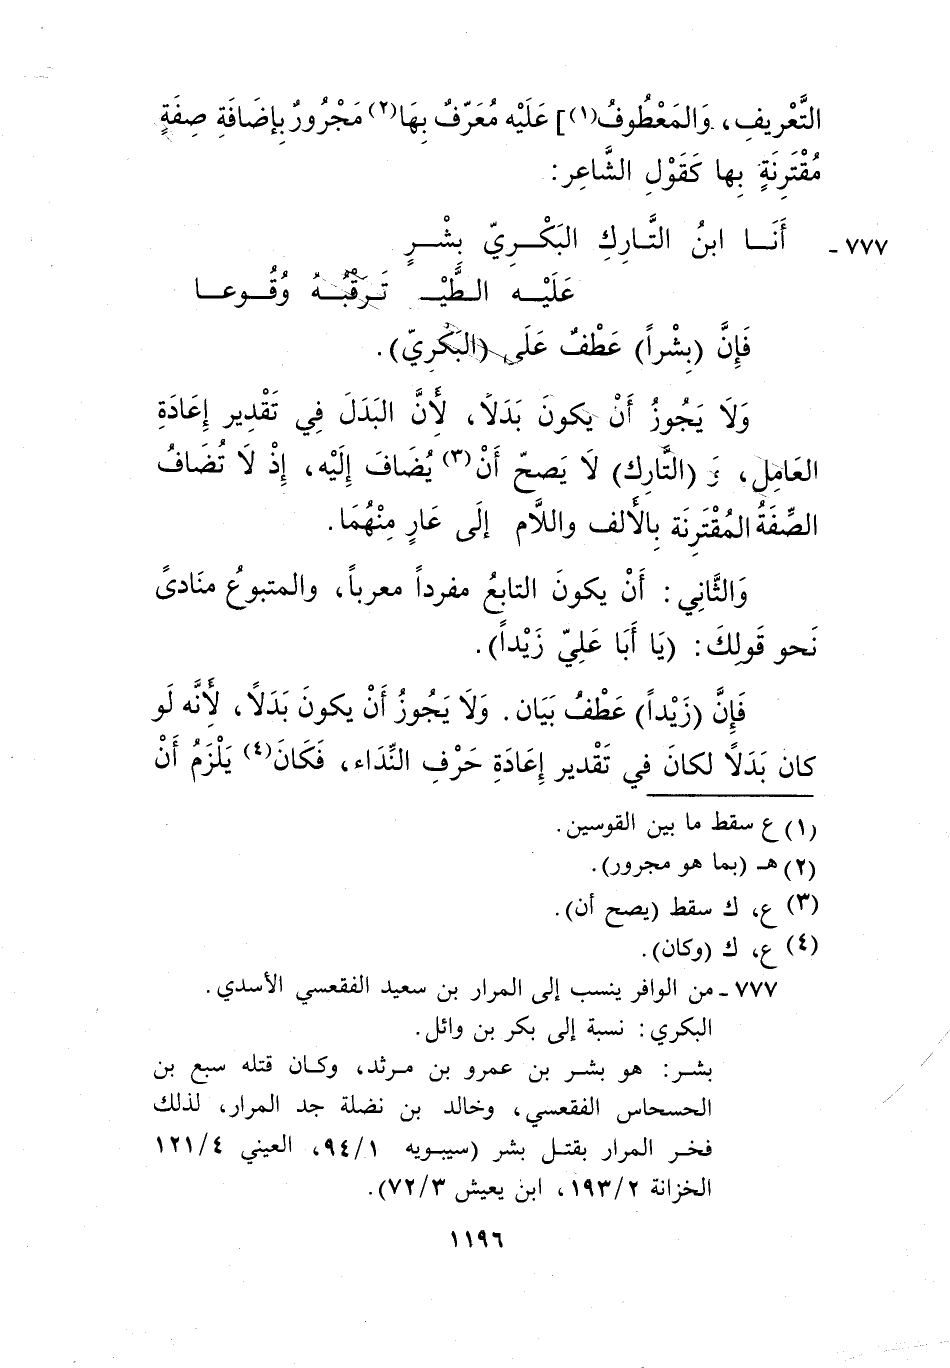 التَّعْرِيفِ، وَالمَعْطُوفُ(١)] عَلَيْهِ مُعَرَّفٌ بِهَا(٢) مَجْرُورٌ بِإِضَافَةِ صِفَةٍ
مُقْتَرِنَةٍ بِها كَقَوْلِ الشَّاعِرِ:
٧٧٧ - أَنَــا ابنُ التَّـارِكِ البَكْـرِيِّ بِشْـرٍ
عَلَيْـهِ الـطَّيْـرُ تَـرْقُبُـهُ وُقُـوعـا
فَإِنَّ (بِشْراً) عَطْفٌ عَلَى (البَكْرِيِّ).
وَلَا يَجُوزُ أَنْ يكونَ بَدَلًا، لِأَنَّ البَدَلَ فِي تَقْدِيرِ إِعَادَةِ
العَامِلِ، وَ (التَّارِك) لَا يَصحّ أَنْ(٣) يُضَافَ إِلَيْهِ، إِذْ لَا تُضَافُ
الصِّفَةُ المُقْتَرِنَة بِالأَلف واللَّامِ إِلَى عَارٍ مِنْهُمَا.
وَالثَّانِي: أَنْ يكونَ التابعُ مفرداً معرباً، والمتبوعُ منَادىً
نَحو قَولِكَ: (يَا أَبَا عَلِيّ زَيْداً).
فَإِنَّ (زَيْداً) عَطْفُ بَيَان. وَلَا يَجُوزُ أَنْ يكونَ بَدَلًا، لِأَنَّه لَو
كان بَدَلًا لكانَ في تَقْدير إِعَادَةِ حَرْفِ النِّدَاء، فَكَانَ(٤) يَلْزَمُ أَنْ
(١) ع سقط ما بين القوسين.
(٢) هـ (بما هو مجرور).
(٣) ع، ك سقط (يصح أن).
(٤) ع، ك (وكان).
٧٧٧ - من الوافر ينسب إلى المرار بن سعيد الفقعسي الأسدي.
البكري: نسبة إلى بكر بن وائل.
بشـر: هو بشـر بن عمرو بن مـرثد، وكـان قتله سبع بن
الحسحاس الفقعسي، وخالد بن نضلة جد المرار، لذلك
فخـر المرار بقتـل بشر (سيبـويه ٩٤/١، العيني ١٢١/٤
الخزانة ١٩٣/٢، ابن يعيش ٧٢/٣).
١١٩٦